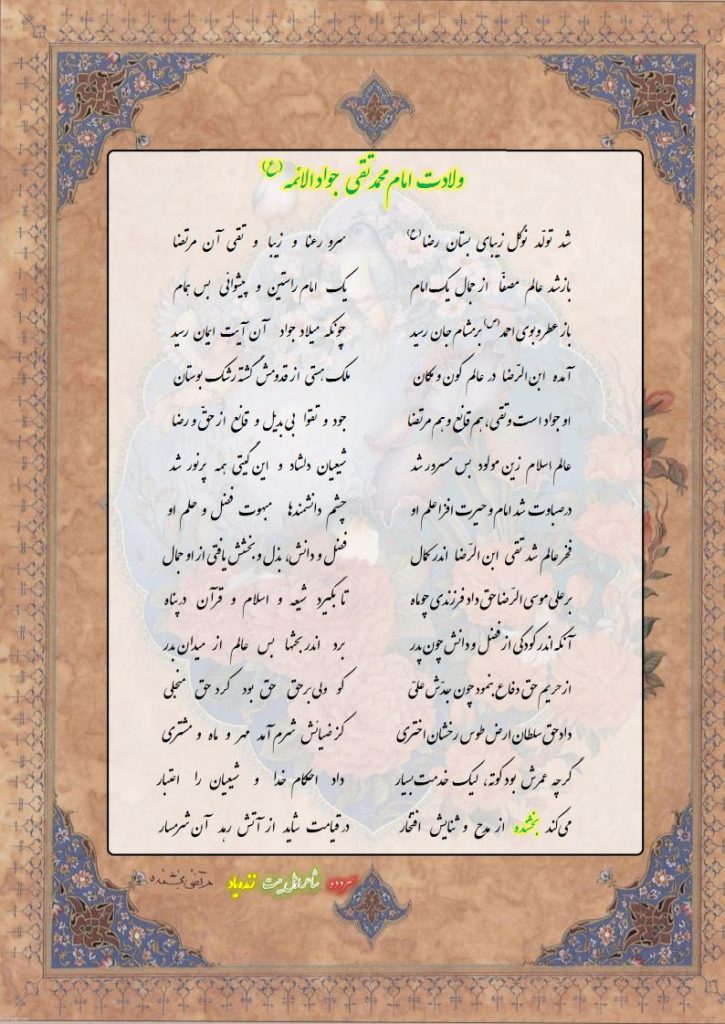 ولادت امام محمد تقی جواد الائمه (ع)
شد تولّد نوگل زیبای بستان رضا (ع) سرو رعنا و زیبا و تقی آن مرتضا
باز شد عالم مصفّا از جمال یک امام یک امام راستین و پیشوائی بس همام
باز عطر و بوی احمد (ص) بر مشام جان رسید چونکه میلاد جواد آن آیت ایمان رسید
آمده ابن الرّضا در عالم کون و مکان ملک هستی از قدومش گشته رشک بوستان
او جواد است و تقی، هم قانع و هم مرتضا جود و تقوا بی بدیل و قانع از حقّ و رضا
عالم اسلام زین مولود بس مسرور شد شیعیان دلشاد و این گیتی همه پرنور شد
در صباوت شد امام و حیرت افزا علم او چشم دانشمندها مبهوت فضل و حلم او
فخر عالم شد تقی ابن الرّضا اندر کمال فضل و دانش، بذل و بخشش یافتی از او جمال
بر علی موسی الرّضا حق داد فرزندی چو ماه تا بگیرد شیعه و اسلام و قرآن در پناه
آنکه اندر کودکی از فضل و دانش چون پدر برد اندر بحثها بس عالم از میدان بدر
از حریم حق دفاع بنمود چون جدّش علیّ کو ولی بر حق حق بود گرد حق منجلی
داد حق سلطان ارض طوس رخشان اختری کز ضیائش شرم آمد مهر و ماه و مشتری
گرچه عمرش بود کوته، لیک خدمت بسیار داد احکام خدا و شیعیان را اعتبار
می کند بخشنده از مدح و ثنایش افتخار در قیامت شاید از آتش رهد آن شرمسار
سروده شاعر اهل بیت زنده یاد